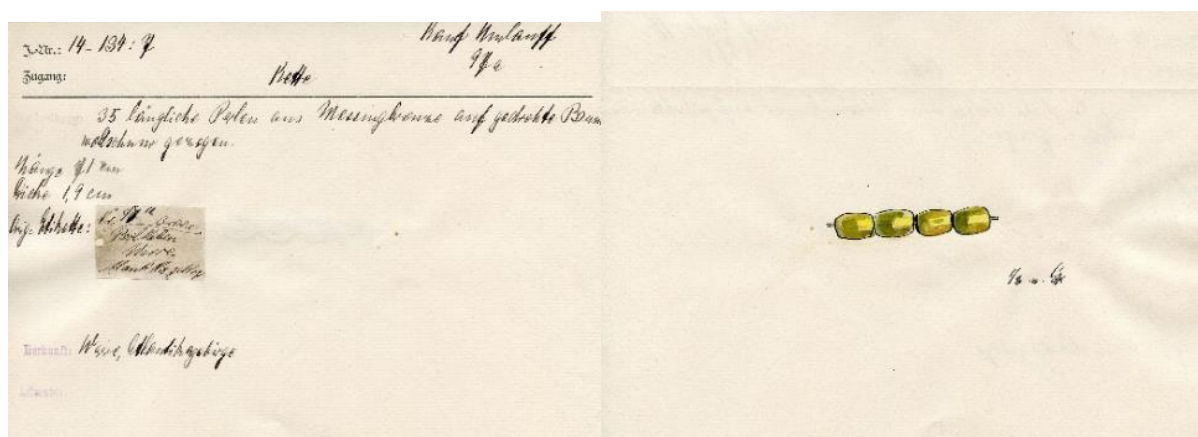 J.-Nr.: 14-134:7
Kauf Umlauff
Zugang: Kette 97a
35 längliche Perlen aus Messingbronze auf gedrehte Baum
wollschnur gezogen.
Länge 71 cm
Dicke 1,9 cm
Orig-Etikette:
97a
Herkunft: Were, Atlantikagebirge
n. Gr.